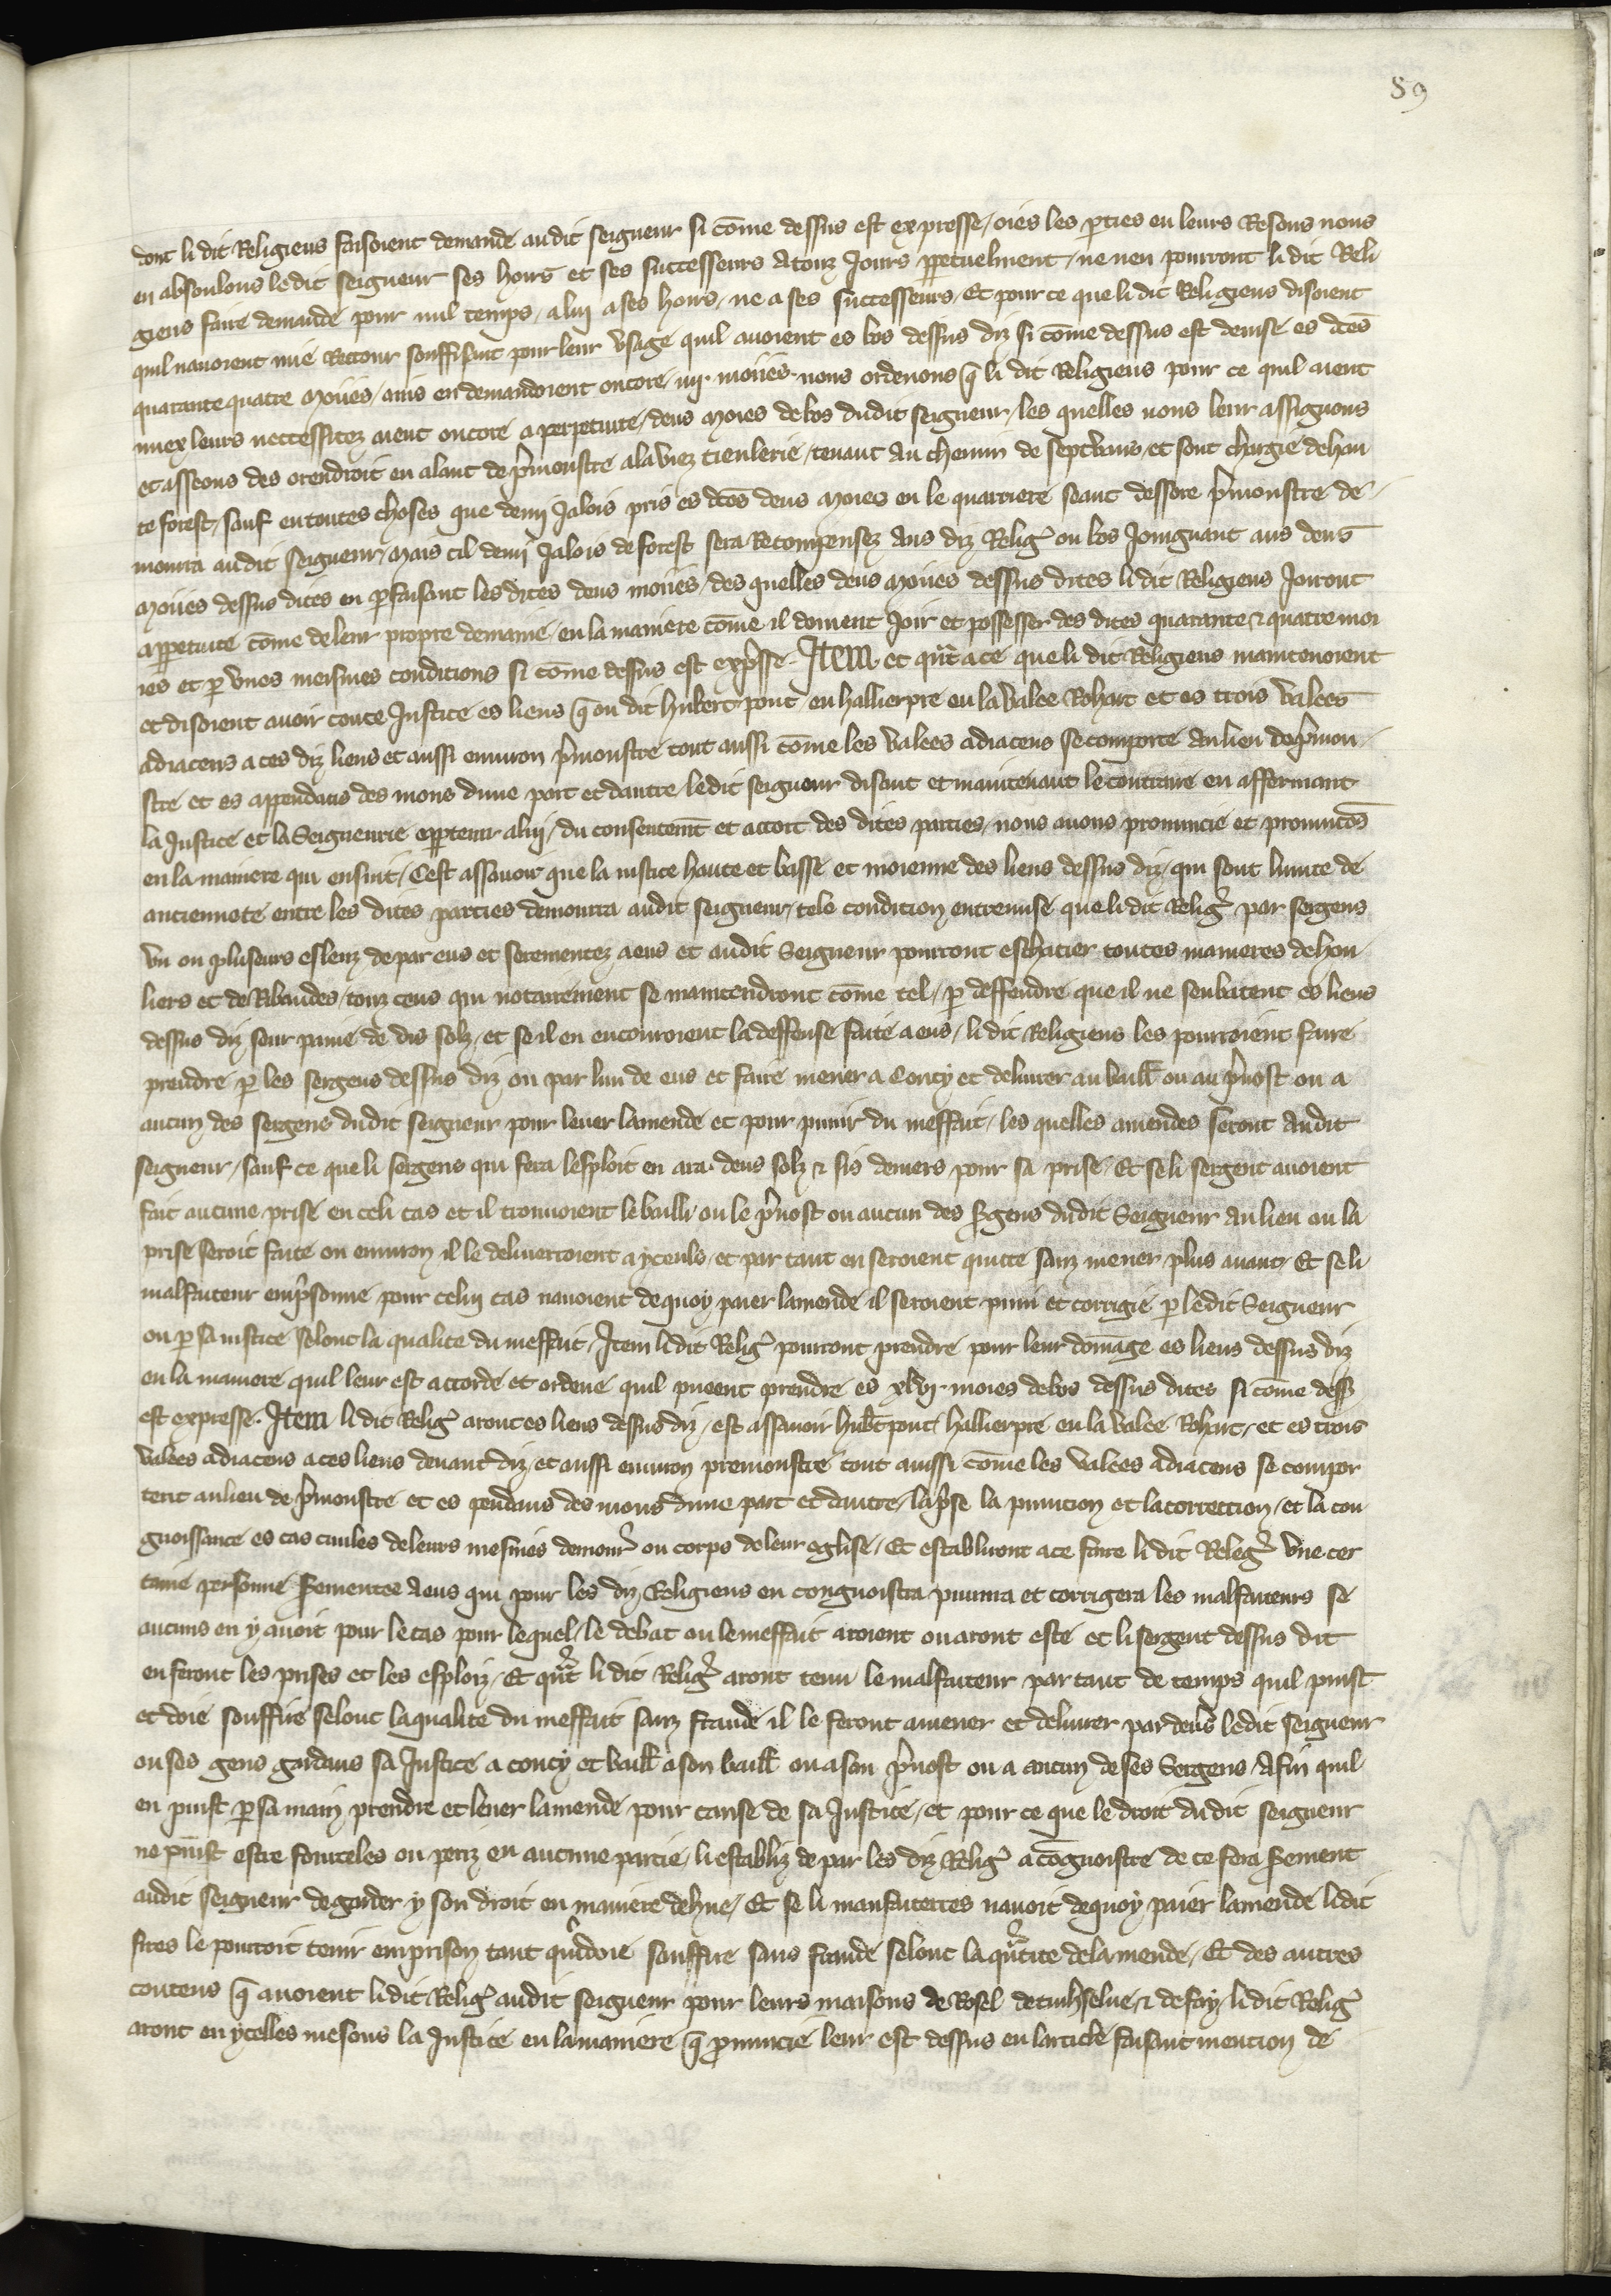 89
dont li dit Religieus faisoient demande audit seigneur si cōme dessus est expresse / oies les pties en leurs Resons nous
en absoulons ledit seigneur ses hoirs et ses successeurs a touz Jours ppetuelment / ne nen pourront li dit Reli
gieus faire demande pour nul temps / a luy a ses hoirs / ne a ses successeurs / Et pour ce que li dit Religieus disoient
quil nauoient mie Retour souffisant pour leur vsage quil auoient es bos dessus diz si cōme dessus est deuise es dc̄es
quarante quatre moiies / ains en demandoient oncore .iiij. moiies nous ordenons q̄ li dit Religieus pour ce quil aient
miex leurs neccessitez aient oncore a perpetuite / deus moies de bos dudit seigneur / les quelles nous leur assignons
et asseons des orendroit en alant de pmonstre a la viez tieulerie / tenant au chemin de septvaus / et sont chargie de hau
te forest / sauf en toutes choses que demy Jalois pris es dc̄es deus moies en le quarriere seant dessore pmonstre de
mourra audit seigneur / Mais cil demy Jalois de forest sera Recompensez aus diz Relig' ou bos Joingnant aus deus
moiies dessus dites en pfaisant les dites deus moiies / des quelles deus moiies dessus dites li dit Religieus Joiront
a ppetuite cōme de leur propre demaine / en la maniere cōme il doiuent Joir et possesser des dites quarante & quatre moi
ies et p vnes meismes conditions si cōme dessus est expsse . Item et qn̄t a ce que li dit Religieus maintenoient
et disoient auoir toute Justice es lieus q̄ on dit hubert pont / en hallierpre en la valee Rohart et es trois valees
adiacens a ces diz lieus et aussi enuiron pmonstre tout aussi cōme les valees adiacens se comporte au lieu de pmon
stre et es appendans des mons dune part et dautre / ledit seigneur disant et maintenant le contraire en affermant
la Justice et la Seigneurie appartenir a luy / du consentemt et acort des dites parties / nous auons pronuncie et pronuncōs
en la maniere qui ensuit / Cest assauoir que la iustice haute et basse et moienne des lieus dessus diz / qui sont limite de
anciennete entre les dites parties demourra audit seigneur / tele condition entremise que li dit Relig' par sergens
vn ou pluseurs esleuz de par eus et serementez a eus et audit Seigneur pourront eschacier toutes manieres de hou
liers et de Ribaudes / touz ceus qui notairement se maintendront cōme tel / p deffendre que il ne senbatent es lieus
dessus diz seur paine de dis solz / et se il en encouroient la deffense faite a eus / li dit Religieus les pourroient faire
prendre p les sergens dessus diz ou par lun de eus et faire mener a Coucy et deliurer au baill ou au puost ou a
aucun des sergens dudit seigneur pour leuer lamende et pour punir du meffait / les quelles amendes seront audit
seigneur / sauf ce que li sergens qui fera lesploit en ara deus solz & sis deniers pour sa prise / Et se li sergent auoient
fait aucune prise en celi cas et il trouuoient le bailli ou le puost ou aucun des sgens dudit Seigneur au lieu ou la
prise seroit faite ou enuiron il le deliuerroient a yceuls / et par tant en seroient quitte sanz mener plus auant / Et se li
malfaiteur empsonne pour celuy cas nauoient dequoy paier lamende il seroient puni et corrigie p ledit Seigneur
ou p sa iustice selonc la qualite du meffait / Item li dit Relig' pourront prendre pour leur domage es lieus dessus diz
en la maniere quil leur est accorde et ordene quil pueent prendre es xlvj moies de bos dessus dites si cōme dess
est expresse . Item li dit Relig' aront es lieus dessus diz / est assauoir hubt pont / hallierpre en la valee Rohart / et es trois
valees adiacens a ces lieus deuant diz / et aussi enuiron premonstre tout aussi cōme les valees adiacens se compor
tent au lieu de pmonstre et es pendans des mons dune part et dautre / la pse la punicion et la correction / et la con
gnoissance es cas ciuiles de leurs mesnies demour' ou corps de leur eglise / Et establiront a ce faire li dit Relig' vne cer
taine personne sementee a eus qui pour les diz Religieus en congnoistra punira et corrigera les malfaiteurs se
aucuns en y auoit pour le cas pour lequel / le debat ou le meffait aroient ou aront este et li sergent dessus dit
en feront les prises et les esploiz / Et qn̄t li dit Relig' aront tenu le malfaiteur par tant de temps quil puist
et doie souffire selonc la qualite du meffait sanz fraude il le feront amener et deliurer par deuers ledit seigneur
ou ses gens gardans sa Justice a coucy et baill a son baill ou a son puost ou a aucun de ses Sergens / Afin quil
en puist p sa main prendre et leuer lamende pour cause de sa Justice / et pour ce que le droit dudit seigneur
ne puist estre fourceles ou periz en aucune partie / li establiz de par les diz Relig' a cōgnoistre de ce fera sement
audit seigneur de garder y son droit en maniere dehue / Et se li maufaiterres nauoit dequoy paier lamende li dit
sires le pourroit tenir em prison tant quil doie souffire sans fraude selonc la qn̄tite de lamende / Et des autres
contens q̄ auoient li dit Relig' audit seigneur pour leurs maisons de Rosel de & de fay / li dit Relig'
aront en ycelles mesons la Justice en la maniere q̄ pnuncie leur est dessus en larticle faisant mention de